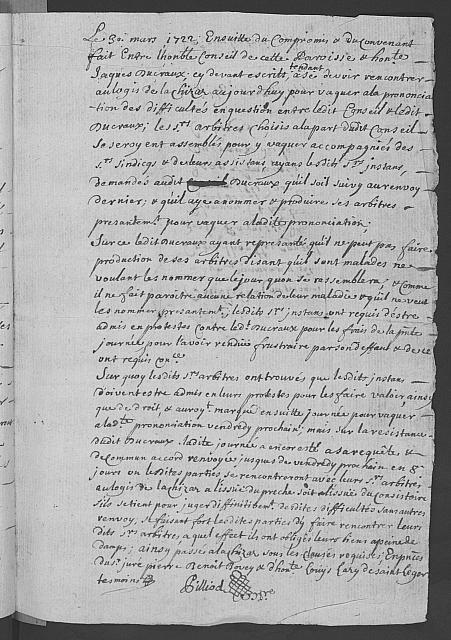 Le 30. mars 1722, Ensuitte du Compromis & du Convenant
fait Entre lhonble Conseil de cette Paroisse & honte
Jaques Ducraux, cy devant escrits, tendant a se devoir rencontrer
au logis de la chizaz aujourdhuy pour vaquer ala prononcia-
tion des difficultés en question entre ledit Conseil & ledit
Ducraux; les Srs arbitres choisis ala part dudit Conseil
se seroyent assemblés pour y vaquer accompagnés des
Srs sindicqs & de leurs assistans, ayans lesdits Srs instans
demandés audit Ducraux quil soit suivy au renvoy
dernier; & quil aye a nommer & produire ses arbitres
presantemt pour vaquer aladite prononciation;
Sur ce ledit Ducraux ayant representé quil ne peut pas faire
production de ses arbitres disant quil sont malades ne
voulant les nommer que le jour quon se rassemblera; & Comme
il ne fait paroitre aucune relation de leur maladie & quil ne veut
les nommer presantemt; lesdits Srs instans ont requis destre
admis en protestes contre ledt Ducraux pour les frais de la pnte
journée pour lavoir rendue frustraire par son deffaut & de ce
ont requis Conce
Sur quoy lesdits Srs arbitres ont trouvés que lesdits instans
doivent estre admis en leurs protestes pour les faire valoir ainsy
que de droit, & auroyt marqué en suitte journée pour vaquer
aladte prononciation vendredy prochain; mais sur la resistance
dudit Ducraux ladite journée a encor esté a sa requête &
de commun accord renvoyée jusques de vendredy prochain en 8.
jours ou lesdites parties se rencontreront avec leurs Srs arbitres
au logis de la chizaz a lissue du preche soit a lissue du Consistoire
sils se tient pour juger diffinitibemt desdites difficultés sans autres
renvoy, se faisant fort lesdites parties dy faire rencontrer leurs
dits Srs arbitres, a quel effect ils ont obligés leurs biens a peine de
damps; ainsy passé a la chizaz sous les Clauses requises; En pnces
du Sr juré pierre Benoit Bovey & dhonte Louys Lary de saint Legier
tesmoins
Pilliod